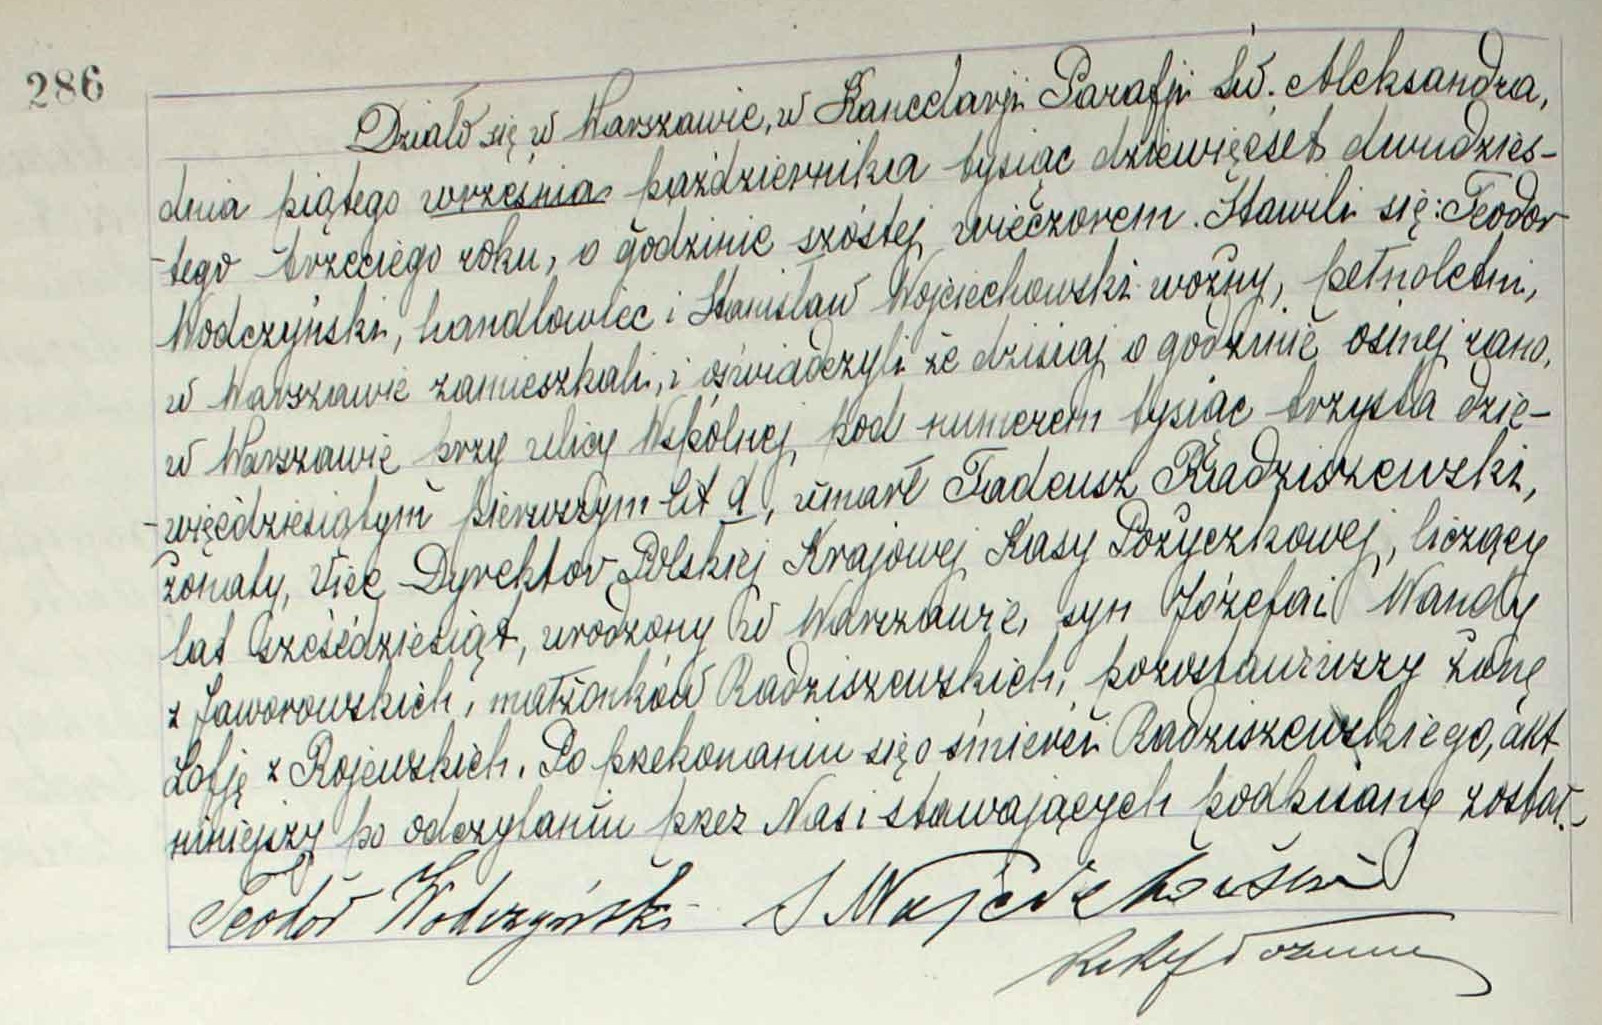 286
Działo się w Warszawie, w Kancelarji Parafji Św. Aleksandra,
dnia piątego września października tysiąc dziewięćset dwudzies-
-tego trzeciego roku, o godzinie szóstej wieczorem. Stawili się: Teodor
Wodczyński, handlowiec i Stanisław Wojciechowski woźny, pełnoletni,
w Warszawie zamieszkali, i oświadczyli że dzisiaj o godzinie ósmej rano,
w Warszawie przy ulicy Wspólnej pod numerem tysiąc trzysta dzie-
-więćdziesiątym pierwszym lit d, umarł Tadeusz Radziszewski,
żonaty, Vice Dyrektor Polskiej Krajowej Kasy Pożyczkowej, liczący
lat sześćdziesiąt, urodzony w Warszawie, syn Józefa i Wandy
z Jaworowskich, małżonków Radziszewskich, pozostawiwszy żonę
Zofję z Rojewskich. Po przekonaniu się o śmierci Radziszewskiego, akt
niniejszy po odczytaniu przez Nas i stawających podpisany został.-
Teodor Wodczyński S Wojciechowski